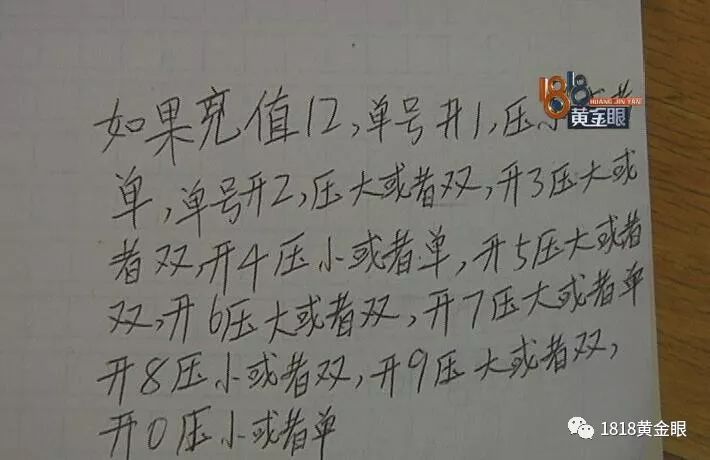 如果充值12,单号开1,压小
1818
HUANG JIN YAN
黄金眼
单,单号开2,压大或者双,开3压大或
者双,开4压小或者单,开5压大或者
双,开6压大或者双,开7压大或者单
开8压小或者双,开9压大或者双,
开0压小或者单
1818黄金眼